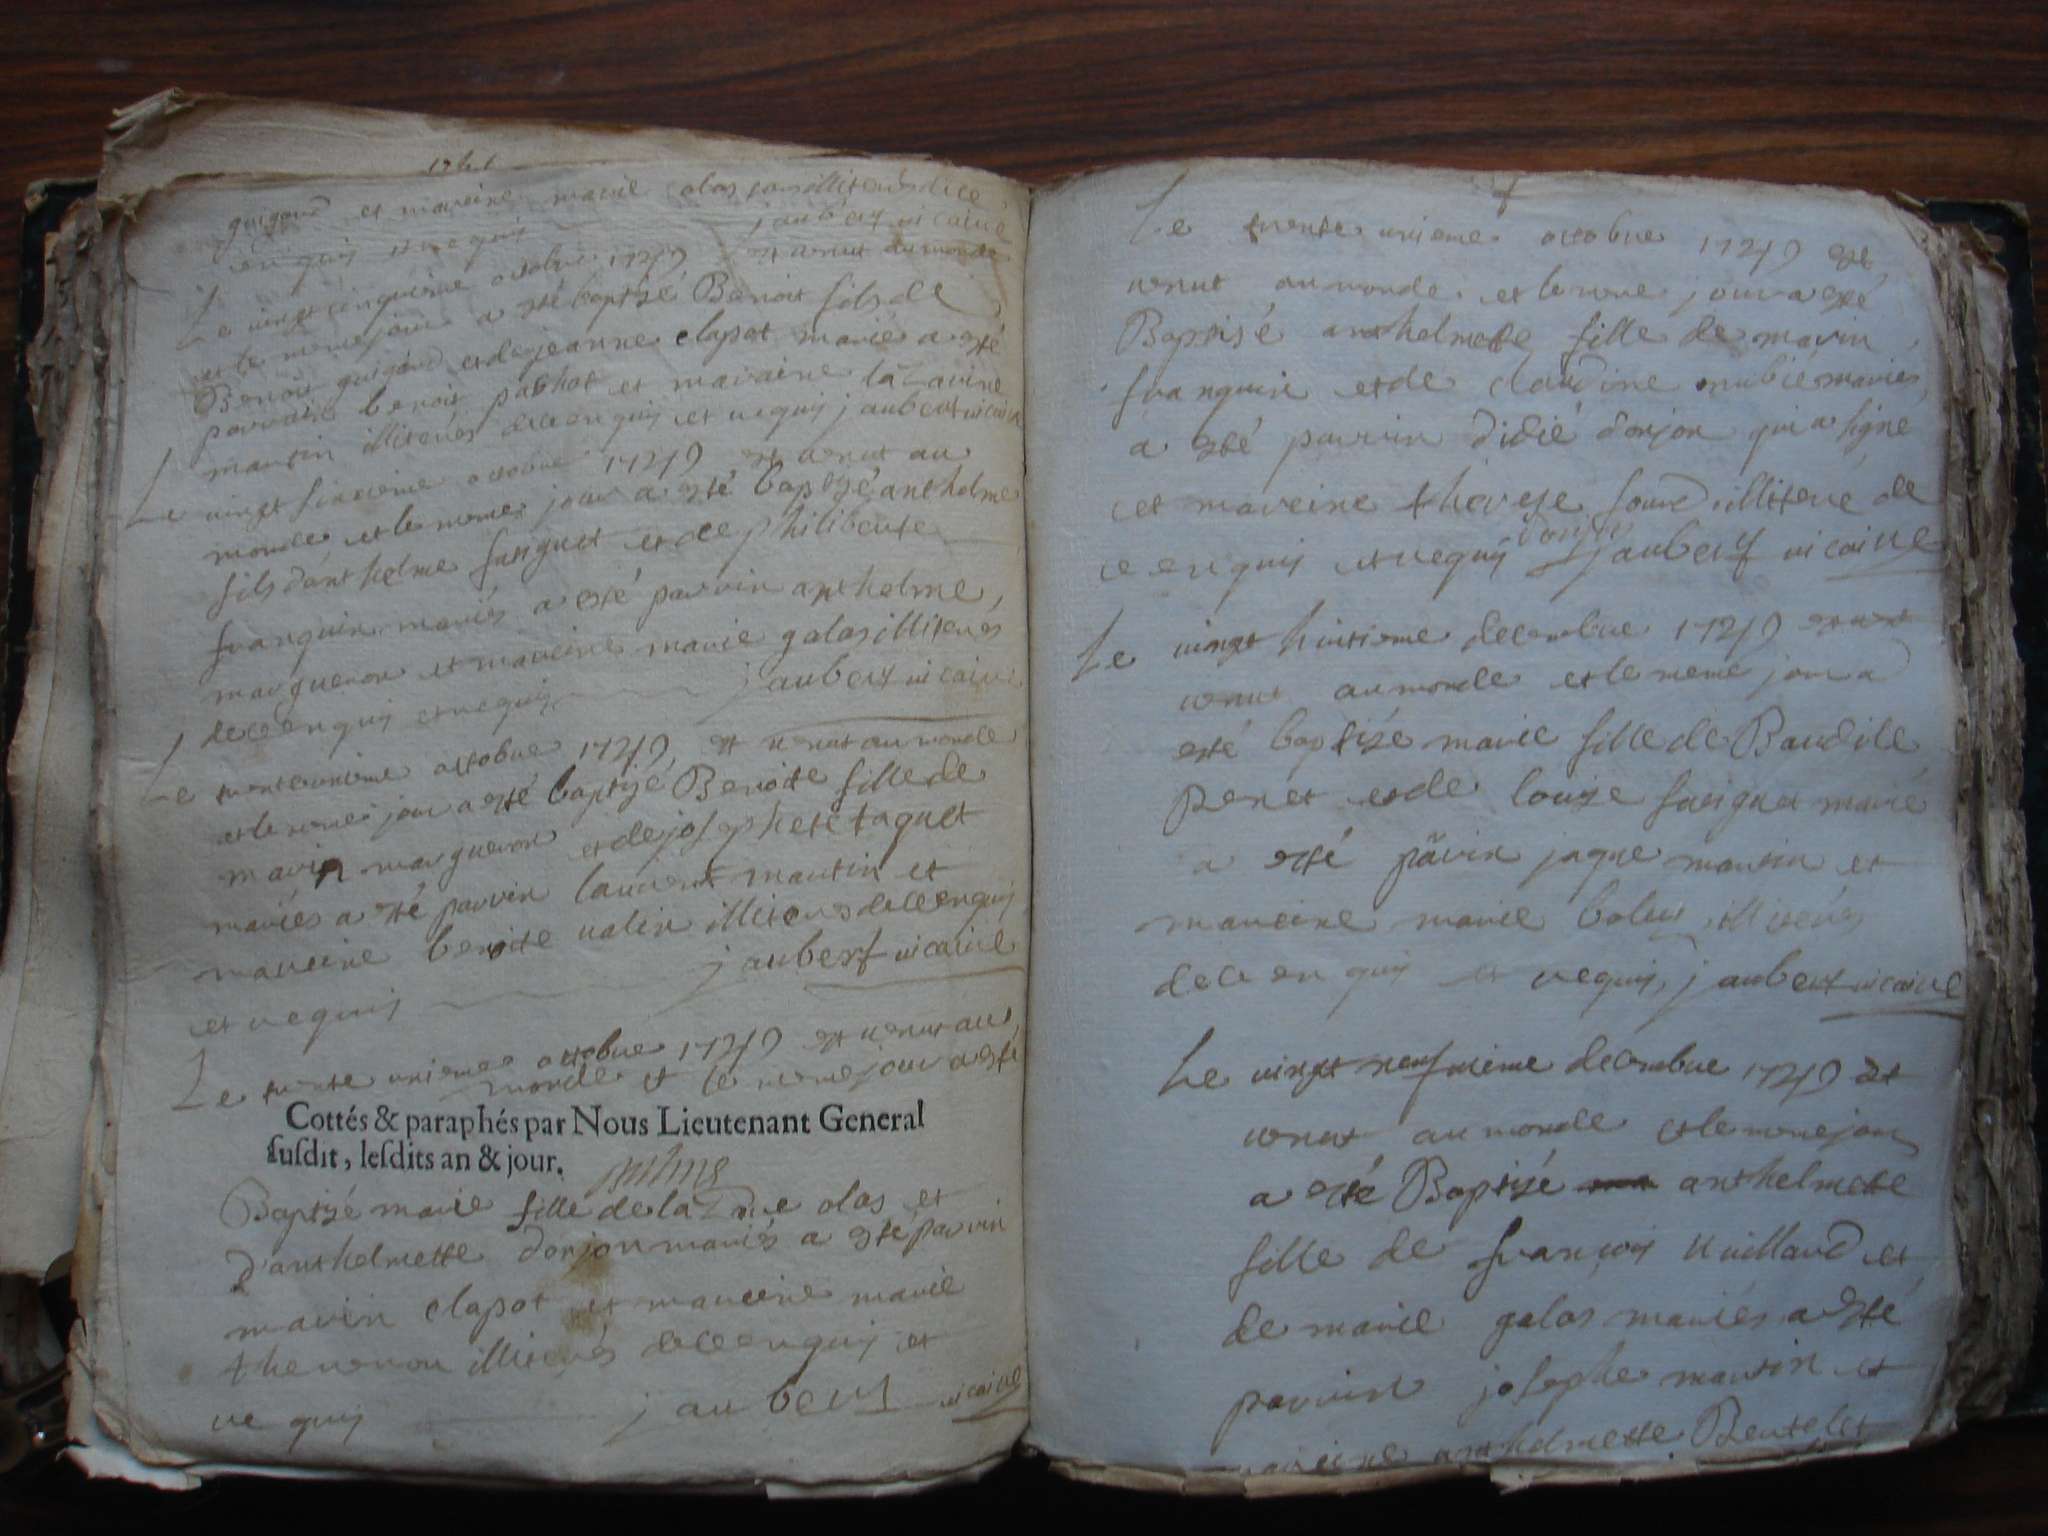 guigard et mareine marie olas tous illiterés de ce
enquis et requis jaubert vicaire
Le vingt cinquieme octobre 1749 est venut au monde
et le meme jour a esté baptizé Benoit fils de
Benoit guigard et de jeanne clapot marié a esté
parrain benoit pachot et maraine lazarine
martin illiterés de ce enquis et requis jaubert vicaire
Le vingt sixieme octobre 1749 est venut au
monde et le meme jour a esté baptizé anthelme
fils d'anthelme furiguet et de philiberte
franquin mariés a esté parrin anthelme
margueron et mareine marie galas illiterés
de ce enquis et requis jaubert vicaire
Le trente unieme octobre 1749 est venut au monde
et le meme jour a esté baptizé Benoite fille de
marin margueron et de josephete taquet
mariés a esté parrin laurent martin et
mareine benoite valin illiterés de ce enquis
et requis jaubert vicaire
Le trente unieme octobre 1749 est venut au
monde et le meme jour a esté
Cottés & paraphés par Nous Lieutenant General
susdit, lesdits an & jour.
Baptizé marie fille de lazare olas et
d'anthelmette donjon mariés a esté parrin
marin clapot et mareine marie
thevenon illiterés de ce enquis et
requis jaubert vicaire
Le trente unieme octobre 1749 est
venut au monde et le meme jour a esté
Baptisé anthelmette fille de marin
franquin et de claudine mariés
a esté parrin didié donjon qui a signé
et mareine thereze illiteré de
ce enquis et requis donjon jaubert vicaire
Le vingt huitieme decembre 1749 est
venut au monde et le meme jour a
esté baptizé marie fille de Baudile
Penet et de louize furiguet marié
a esté parin jaque martin et
mareine marie illiterés
de ce enquis et requis jaubert vicaire
Le vingt neufvieme decembre 1749 est
venut au monde et le meme jour
a esté Baptizé anthelmette
fille de françois Vuillard et
de marie galas mariés a esté
parrin josephe martin et
mareine anthelmette Bertelet